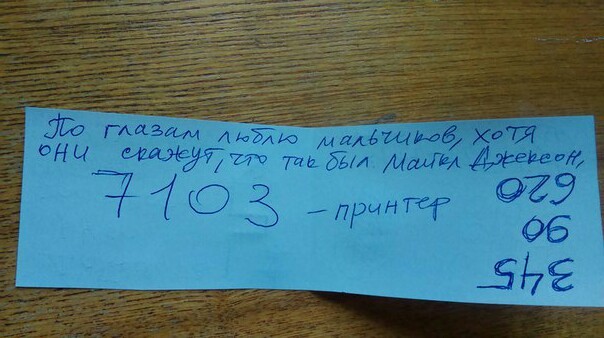 По глазам люблю мальчиков, хотя
они скажут, что так был Майкл Джексон,
7103 - принтер
620
90
345